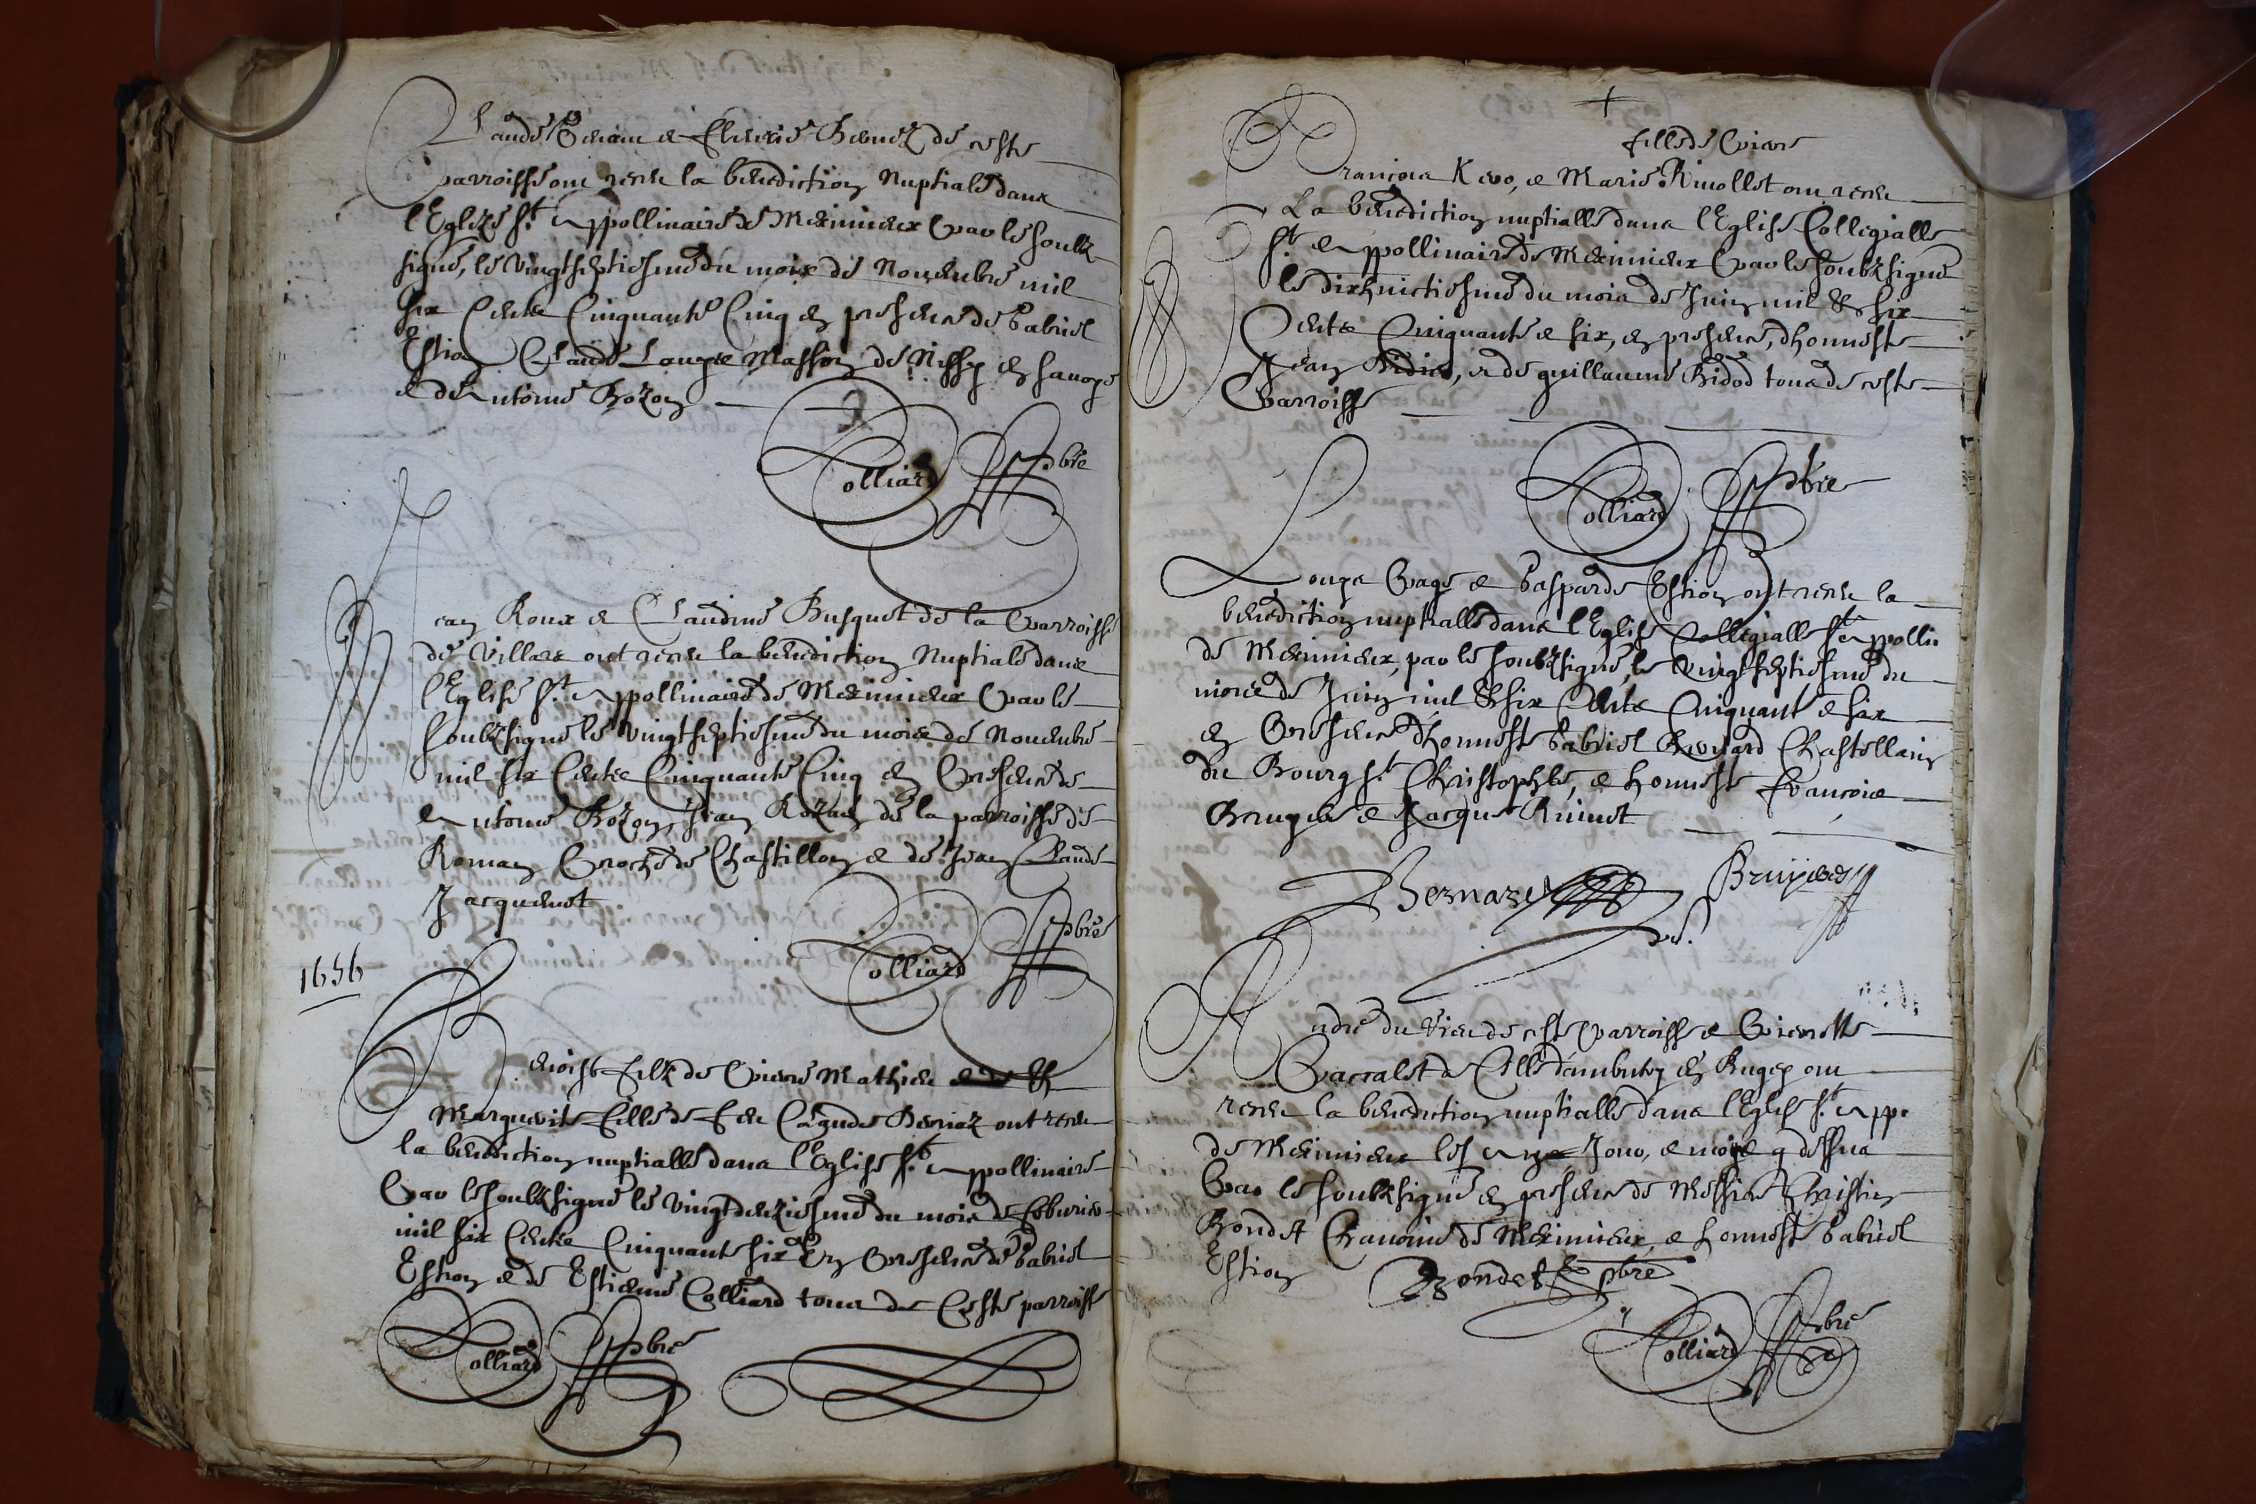 Claude Geriau e Clauvie Bernez de ceste
parroisse ont receu la benediction Nuptiale dans
l'Eglize St Appollinaire de Meximieux par le soubz
signé, le vingtseptiesme du moix de Novembre mil
six Cents Cinquante Cinq en presence de Gabriel
Estion Claude Masson de Nissy en savoye
e de Antoine Bozon
Colliard pbre
Jean Roux e Claudine Busquet de la Parroisse
de Villars ont receu la benediction Nuptiale dans
l'Eglise St Appollinaire de Meximieux par le
soubzsigné le vingtseptiesme du mois de Novembre
mil six Cents Cinquante Cinq en presence de
Antoine Bozon, Jean de la parroisse de
Roman proche de Chastillon e de Jean Claude
Jacquemot
Colliard pbre
1656
Benoist filz de Pierre Mathieu
Marguerite fille de feu Claude Berniaz ont receu
la benediction nuptialle dans l'Eglise St Appollinaire
par le soubzsigné le vingtdeuziesme du mois de febvrier
mil six Cents Cinquante six En presence de Gabriel
Estion e de Estienne Colliard tous de Ceste parroisse
Colliard pbre
fille de Pierre
François Kero, e Marie Rivollet ont receu
La benediction nuptialle dans l'Eglise Collegialle
St Appollinaire de Meximieux par le soubzsigné
le dixhuictiesme du mois de Juin mil & six
Cents Cinquante e six, en presence, dhonneste
Jean, e de guillaume Bidod tous de ceste
Parroisse
Colliard pbre
Louys Page e Gasparde Estion ont receu la
benediction nuptialle dans l'Eglise Collegialle St Appolli
de Meximieux, par le soubzsigné, le vingtseptiesme du
mois de Juin mil & six Cents Cinquante e six
en Presence dhonneste Gabriel Bernard Chastellain
du Bourg St Christophle, e honneste françois
Bruyeres e Jacques Rivvet
Bernard Bruyeres
André du Vieu de ceste parroisse e Pierrette
Paccalet de Celle d'ambutrix en Bugey ont
receu la benediction nuptialle dans l'Eglise St App.
de Meximieux les an Jour, e mois q dessus
Par le soubzsigné en presence de Messire Christin
Bondet Chanoine de Meximieux, e honneste Gabriel
Estion Bondet pbre
Colliard pbre